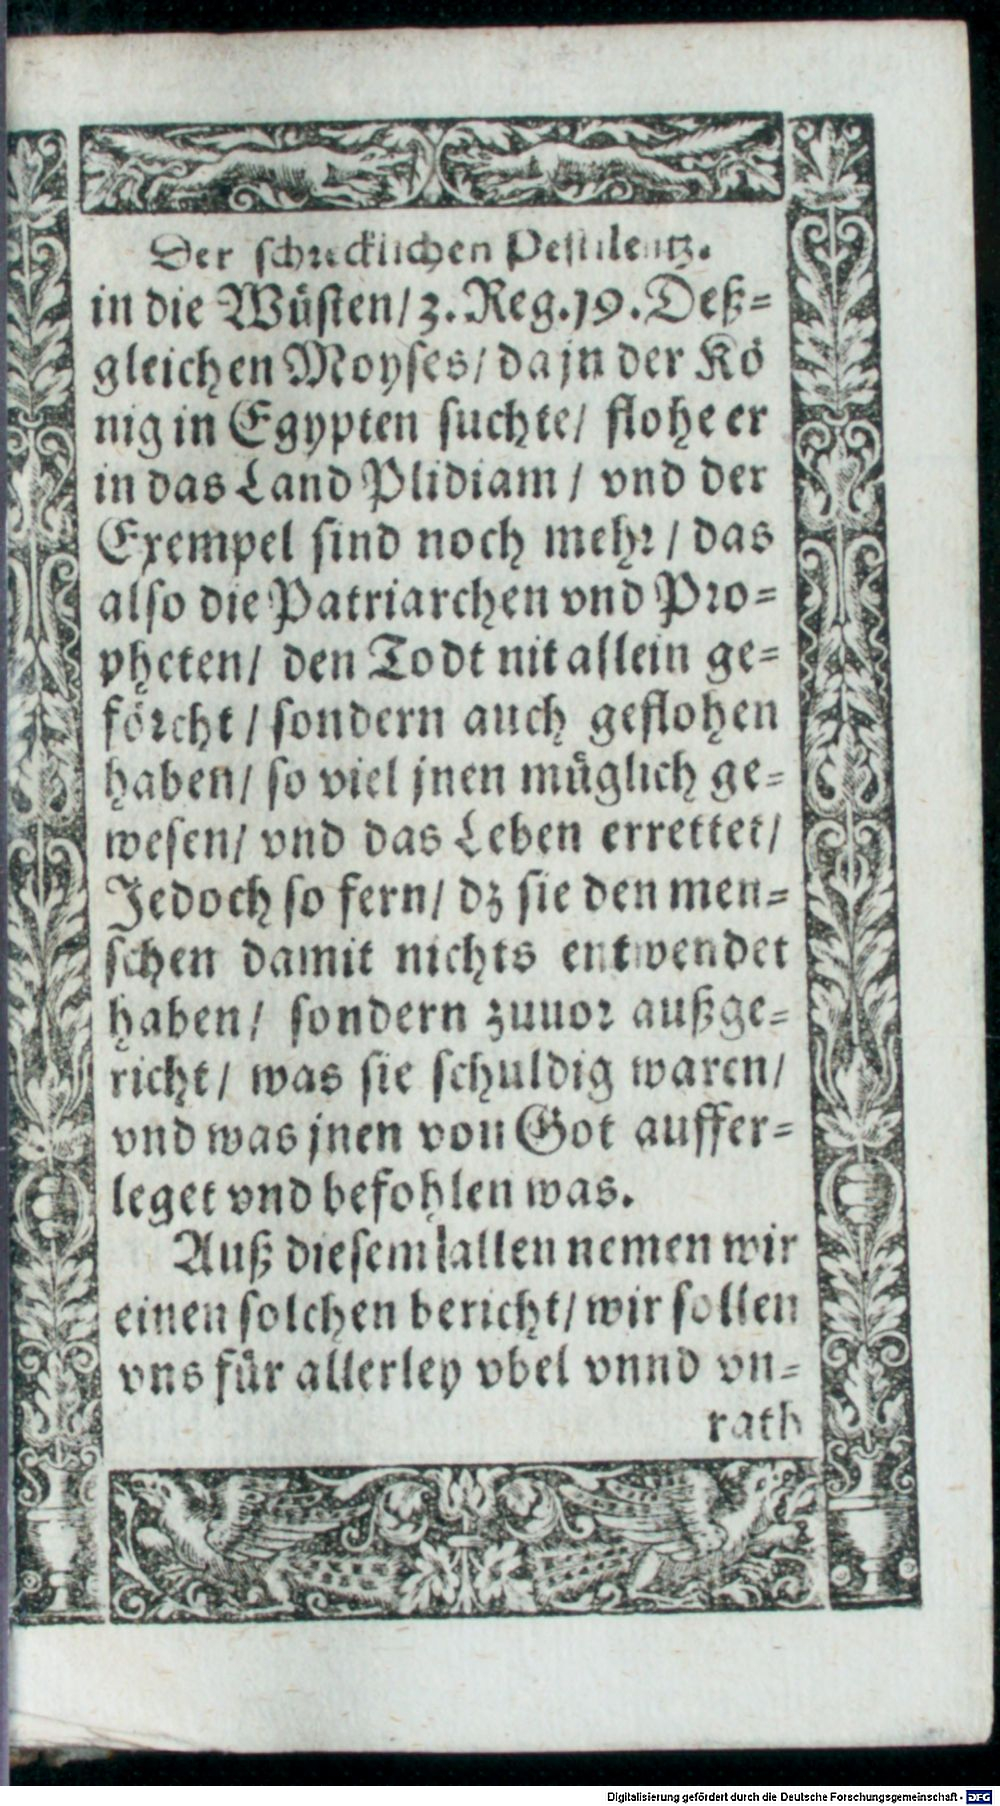 Der schrecklichen Pestilentz.
in die Wüsten/ 3. Reg. 19. Deß-
gleichen Moyses/ da jn der Kö
nig in Egypten suchte/ flohe er
in das Land Plidiam/ vnd der
Exempel sind noch mehr/ das
also die Patriarchen vnd Pro-
pheten/ den Todt nit allein ge-
förcht/ sondern auch geflohen
haben/ so viel jnen müglich ge-
wesen/ vnd das Leben errettet/
Jedoch so fern/ dz sie den men-
schen damit nichts entwendet
haben/ sondern zuuor außge-
richt/ was sie schuldig waren/
vnd was jnen von Got auffer-
leget vnd befohlen was.
Auß diesem allen nemen wir
einen solchen bericht/ wir sollen
vns für allerley vbel vnnd vn-
rath
Digitalisierung gefördert durch die Deutsche Forschungsgemeinschaft - DFG